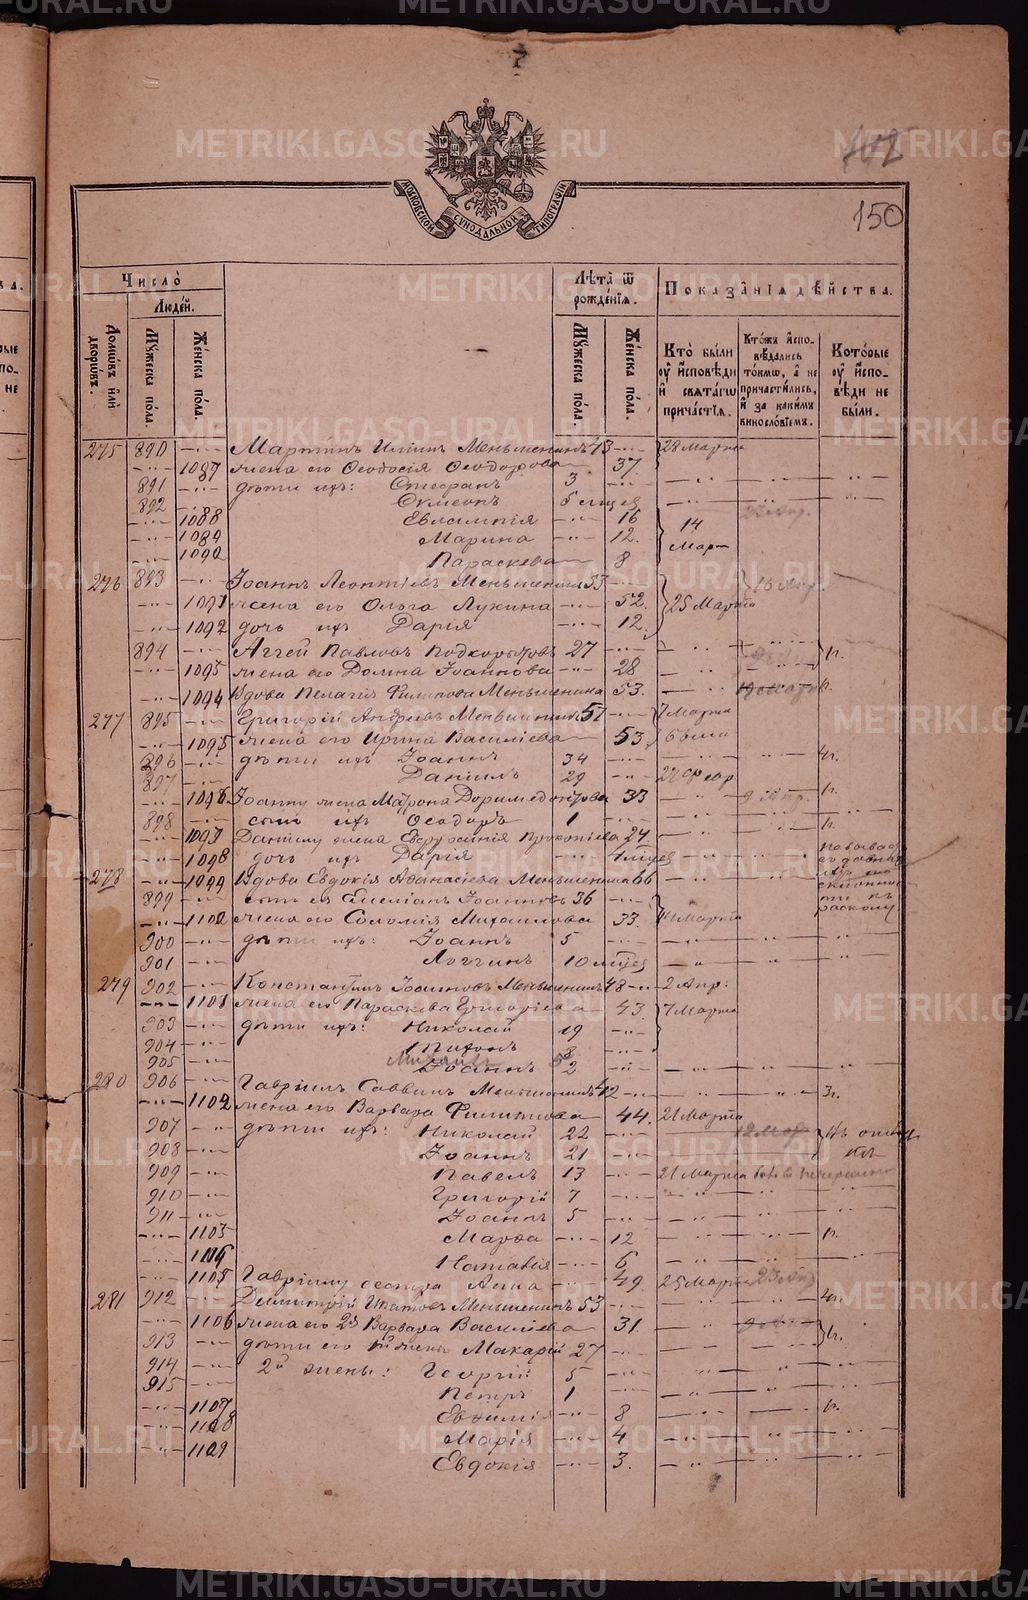 METRIKI.GASO-URAL.RU
МОСКОВСКОЙ СѴНОДАЛЬНОЙ ТИПОГРАФІИ
150
Число̀
Людей.
Домѡвъ или дворѡвъ.
Мꙋжеска пола.
Женска пола.
Лѣта ѿ рожденїѧ.
Мꙋжеска пола.
Женска пола.
Показанїѧ дѣйства.
Кто были ꙋ исповѣди и свѧтагѡ причастїѧ.
Ктожъ исповѣдались токмѡ, а не причастились, и за какимъ винословїемъ.
Которые ꙋ исповѣди не были.
275 890 Мартинъ Илiинъ Меньшенинъ 43 28 Марта
1087 жена его Ѳеодосія Ѳеодорова 37
891 дѣти ихъ: Стефанъ 3
892 Симеонъ 5 мцев
1088 Евлампія 16 14
1089 Марина 12 Март
1090 Параскева 8
276 893 Іоаннъ Леонтіевъ Меньшенинъ 53
1091 жена его Ольга Лукина 52 25 Марта
1092 дочь ихъ Дарія 12
894 Аггей Павловъ Подкорытовъ 27
1093 жена его Домна Іоаннова 28
1094 Вдова Пелагія Филипова Меньшенина 53
277 895 Григорій Андреевъ Меньшенинъ 51 7 Марта
1095 жена его Ирина Василіева 53
896 дѣти ихъ Іоаннъ 34
897 Даніилъ 29
1096 Іоанну жена Матрона Доримедонтова 33
898 сынъ ихъ Ѳеодоръ 1
1097 Даніилу жена Евфросинія Прокопіева 24
1098 дочь ихъ Дарія
278 1099 Вдова Евдокія Аѳанасіева Меньшенина 66
899 сынъ ея Емеліанъ Іоанновъ 36
1100 жена его Соломія Михаилова 33 Марта
900 дѣти ихъ: Іоаннъ 5
901 Логгинъ 10 мцев
279 902 Константинъ Іоанновъ Меньшенинъ 48 2 Апр.
1101 жена его Параскева Григоріева 43 7 Марта
903 дѣти ихъ: Николай 19
904 Тихонъ 8
905 Іоаннъ 2
280 906 Гавріилъ Саввинъ Меньшенинъ 42
1102 жена его Варвара Филипова 44 21 Марта
907 дѣти ихъ: Николай 22
908 Іоаннъ 21
909 Павелъ 13 21 Марта
910 Григорій 7
911 Іоаннъ 5
1103 Марѳа 12
1104 Наталія 6
1105 Гавріилу сестра Анна 49 25 Марта
281 912 Димитрій Ипатовъ Меньшенинъ 53
1106 жена его 2я Варвара Василіева 31
913 дѣти его Макарій 27
914 2й жены: Георгій 5
915 Петръ 1
1107 Евфимія 8
1108 Марія 4
1109 Евдокія 3